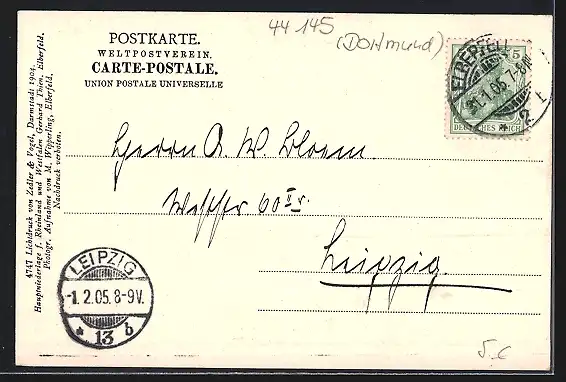 44 145
(Dortmund)
POSTKARTE.
WELTPOSTVEREIN.
CARTE-POSTALE.
UNION POSTALE UNIVERSELLE
ELBERFELD
31.1.05. 7-8N
2 r
5
DEUTSCHES REICH
4747 Lichtdruck von Zedler & Vogel, Darmstadt 1904.
Hauptniederlage f. Rheinland und Westfalen Gerhard Thien, Elberfeld.
Photogr. Aufnahme von M. Wipperling, Elberfeld.
Nachdruck verboten.
Herrn A. W. Bloem.
60 II r.
Leipzig.
LEIPZIG
-1.2.05.8-9V.
* 13 b